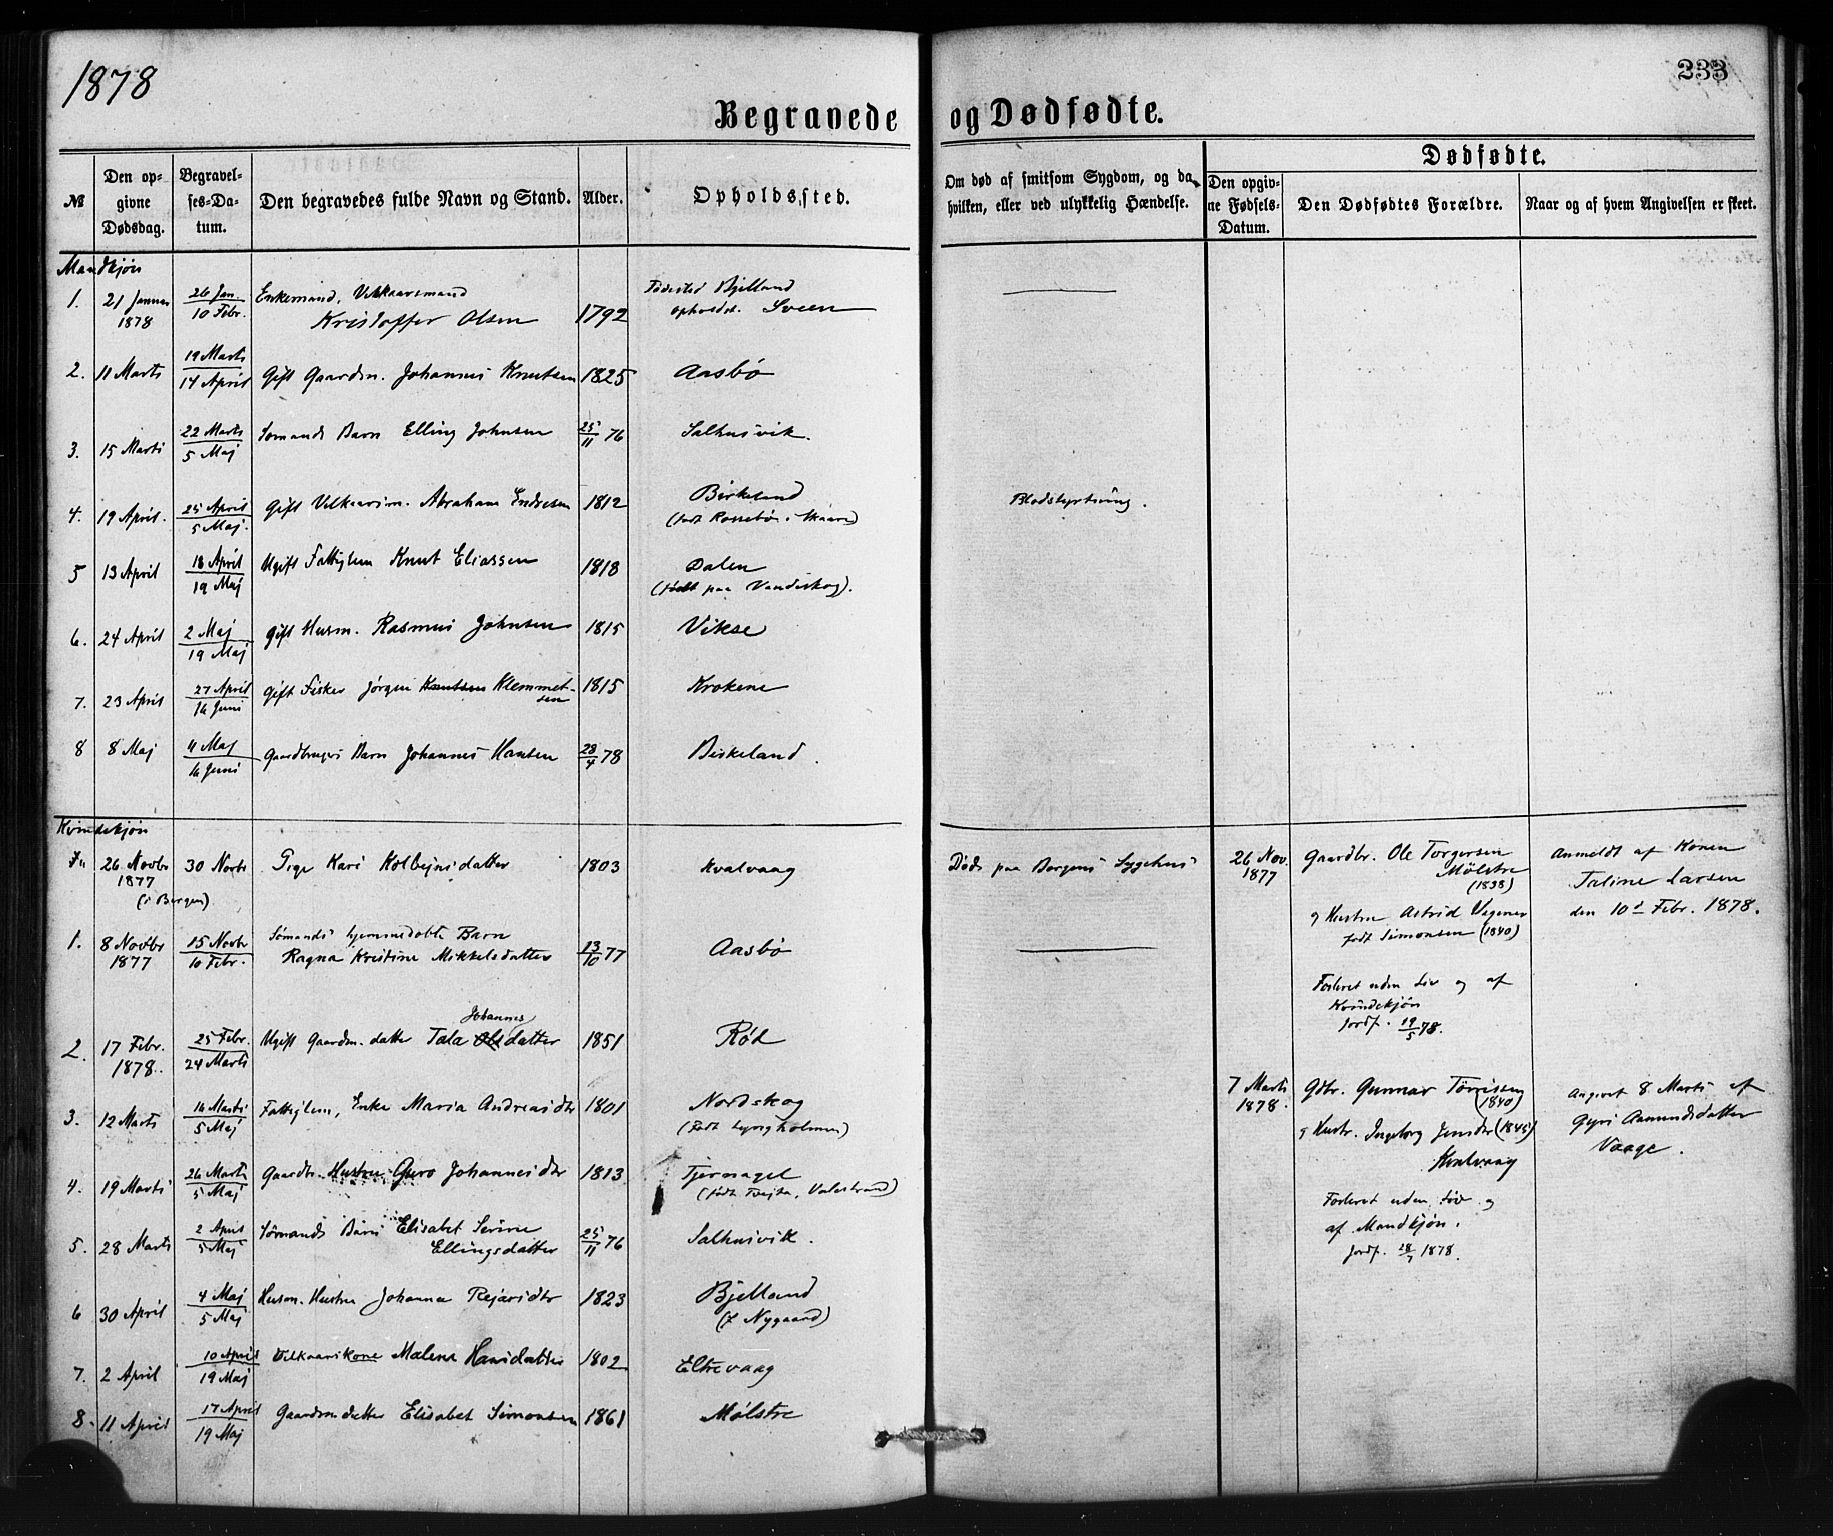 1878
233
Begravede og Dødfødte.
№
Den opgivne Dødsdag.
Begravelses-Datum.
Den begravedes fulde Navn og Stand.
Alder.
Opholdssted.
Om død af smitsom Sygdom, og da hvilken, eller ved ulykkelig Hændelse.
Dødfødte.
Den opgivne Fødsels-Datum.
Den Dødfødtes Forældre.
Naar og af hvem Angivelsen er skeet.
Mandkjøn
1. 21 Januar 1878 26 Jan. 10 Febr. Enkemand, Vilkaarsmand Kristoffer Olsen 1792 Fødested Bjelland opholdst. Sveen
2. 11 Marts 19 Marts 14 April Gift Gaardm. Johannes Knutsen 1825 Aasbø
3. 15 Marts 22 Marts 5 Maj Sømands Barn Elling Johnsen 25/11 76 Salhusvik.
4. 19 April. 25 April 5 Maj. Gift Vilkaarsm. Abraham Endresen 1812 Birkeland (født Rossebø i Skaare) Blodstyrtning.
5 13 April 18 April 19 Maj Ugift Fattiglem Knut Eliassen 1818 Dalen (født paa Vandaskog).
6. 24 April 2 Maj 19 Maj Gift Husm. Rasmus Johnsen 1815 Vikse
7. 23 April 27 April 16 Juni Gift Fisker Jørgen Knutsen Klemmetsen 1815 Krokene
8 8 Maj 11 Maj 16 Juni Gaardbrugers Barn Johannes Hansen 28/4 78 Birkeland.
Kvindekjøn
26 Novbr 1877 (i Bergen) 30 Novbr Pige Kari Kolbejnsdatter 1803 Kvalvaag Død paa Bergens Sygehus
1. 8 Novbr 1877 15 Novbr 10 Febr. Sømands hjemmedøbte Barn Ragna Kristine Mikkelsdatter 13/10 77 Aasbø
2. 17 Febr. 1878. 25 Febr. 24 Marts Ugift Gaardm. datter Tala Ols Johannesdatter 1851 Rød
3. 12 Marts 16 Marts 5 Maj Fattiglem, Enke Maria Andreasdtr 1801 Nordskog (født Lyngholmen)
4. 19 Marts 26 Marts 5 Maj Gaardbr. Hustru Guro Johannesdtr 1813 Tjernagel (født Tvejta, Valestrand)
5. 28 Marts 2 April 5 Maj Sømands Barn Elisabet Serine Ellingsdatter 25/11 76 Salhusvik.
6 30 April 4 Maj 5 Maj Husm. Hustru Johanna Rejarsdtr 1823 Bjelland (f Nygaard)
7. 2 April 10 April 19 Maj Vilkaarskone Malena Hansdatter 1802 Eltrevaag
8. 11 April 17 April 19 Maj Gaardm datter Elisabet Simonsen 1861 Mølstre
26 Nov. 1877
Gaardbr. Ole Torgersen
Mølstre
(1838)
og Hustru Astrid Vegener
født Simonsen (1840)
Foderet uden Liv og af
Kvindekjøn
Jordf. 19/5 78.
Anmeldt af Konen
Taline Larsen
den 10d Febr. 1878.
7 Marts 1878.
Gdbr. Gunnar Tørrissen
(1840)
og Hustr. Ingeborg Jensdtr (1845)
Kvalvaag
Foderet uden Liv og
af Mandkjøn.
Jordf. 28/7 1878.
Angivet 8 Marts af
Gyri Aamundsdatter
Vaage.